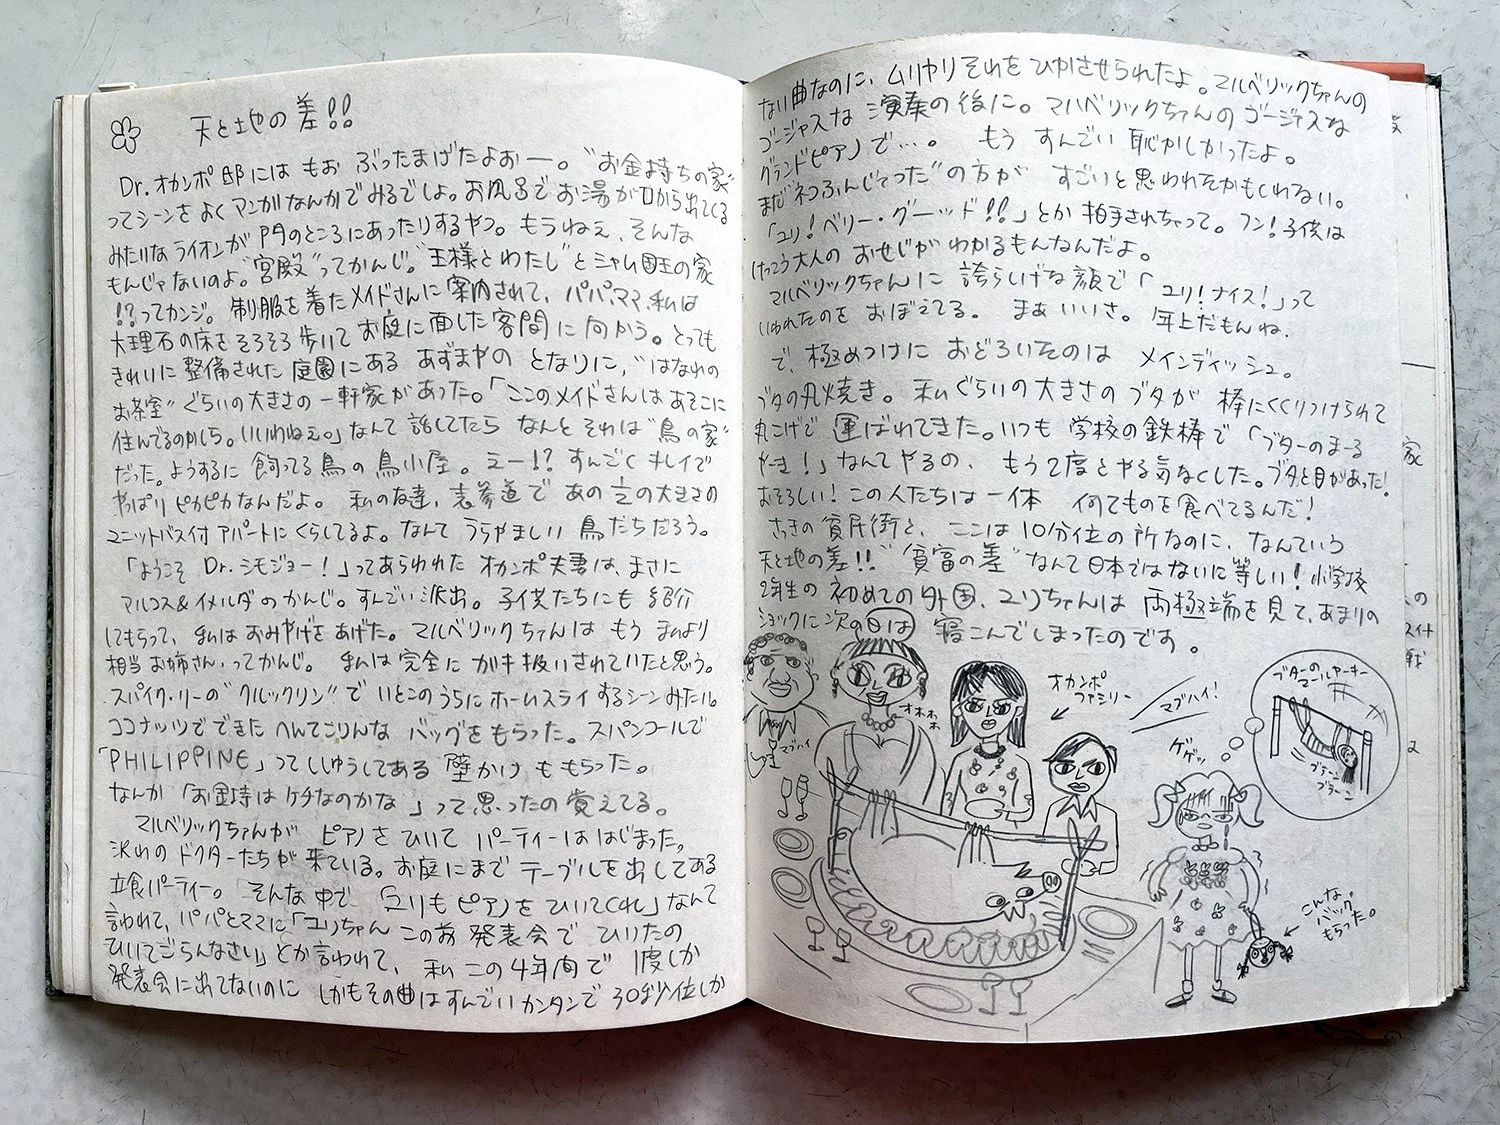 天と地の差!!
Dr.オカンポ邸には もお ぶったまげたよおー。"お金持ちの家"
ってシーンを よくマンガなんかでみるでしょ。お風呂でお湯が口から出てくる
みたいなライオンが 門のところにあったりするやつ。もうねえ、そんな
もんじゃないのよ。"宮殿"ってかんじ。"王様とわたし"とシャム国王の家
!?ってカンジ。制服を着たメイドさんに案内されて、パパ、ママ、私は
大理石の床をそろそろ歩いてお庭に面した客間に向かう。とっても
きれいに整備された庭園にある あずまやの となりに、"はなれの
お茶室"ぐらいの大きさの一軒家があった。「ここのメイドさんはあそこに
住んでるのかしら。いいわねぇ。」なんて話してたら なんと それは"鳥の家"
だった。ようするに 飼ってる鳥の鳥小屋。えー!?すんごくキレイで
やっぱりピカピカなんだよ。私の友達、表参道であの½の大きさの
ユニットバス付アパートにくらしてるよ。なんてうらやましい鳥だちだろう。
「ようこそ Dr.シモジョー!」ってあらわれた オカンポ夫妻は、まさに
マルコス&イメルダのかんじ。すんごい派出。子供たちにも紹介
してもらって、私はおみやげをあげた。マルベリックちゃんは もう 私より
相当お姉さん、ってかんじ。私は完全に ガキ扱いされていたと思う。
スパイク・リーの"クルックリン"でいとこのうちにホームステイするシーンみたい。
ココナッツでできた へんてこりんな バッグをもらった。スパンコールで
「PHILIPPINE」ってししゅうしてある 壁かけ ももらった。
なんか「お金持はケチなのかな」って思ったの覚えてる。
マルベリックちゃんが ピアノをひいて パーティーははじまった。
沢山のドクターたちが来ている。お庭にまでテーブルを出してある
立食パーティー。そんな中で、「ユリもピアノをひいてくれ」なんて
言われて、パパとママに「ユリちゃん この前発表会で ひいたの
ひいてごらんなさい」とか言われて、私この4年間で1度しか
発表会に出てないのに しかもその曲はすんごいカンタンで30秒位しか
ない曲なのに、ムリヤリそれをひかさせられたよ。マルベリックちゃんの
ゴージャスな演奏の後に。マルベリックちゃんのゴージャスな
グランドピアノで…。もう すんごい恥かしかったよ。
まだ"ネコふんじゃった"の方が すごいと思われたかもしれない。
「ユリ!ベリー・グーッド!!」とか拍手されちゃって。フン!子供は
けっこう大人の おせじが わかるもんなんだよ。
マルベリックちゃんに 誇らしげな顔で「ユリ!ナイス!」って
いわれたのをおぼえてる。まぁいいさ。年上だもんね。
で、極めつけに おどろいたのは メインディッシュ。
ブタの丸焼き。私ぐらいの大きさのブタが棒にくくりつけられて
丸こげで運ばれてきた。いつも 学校の鉄棒で「ブターのまーる
やーき!」なんてやるの、もう2度とやる気なくした。ブタと目があった!
おそろしい!この人たちは一体 何てものを食べてるんだ!
さっきの貧民街と、ここは10分位の所なのに、なんていう
天と地の差!!"貧富の差"なんて日本ではないに等しい!小学校
2年生の初めての外国、ユリちゃんは両極端を見て、あまりの
ショックに次の日は 寝こんでしまったのです。
マブハイ
オホホホ
オカンポ
ファミリー
マブハイ!
ゲゲッ
ブターの
マールヤーキー
ブラーン
ブラーン
こんな
バッグ
もらった。
家